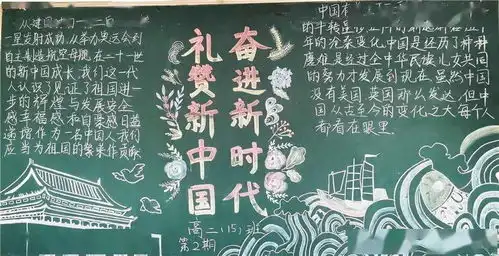 从建国
一星发射成功,从举办奥运会到
自主制造航空母舰,在二十一世
的新中国成长,我们这一代
人认识了见证了祖国进一
步的辉煌与发展,安全
感幸福感和自豪感日益
递增,作为一名中国人,我们
应当为祖国的繁荣作贡献
奋进新时代
礼赞新中国
高二(15)班
第2期
中国
年的沧桑变化,中国是经历了种种
度难关经过全中华民族儿女共同
的努力才发展到现在,虽然中国
没有美国,英国那么发达,但中
国从古至今的变化之大每个人
都看在眼里